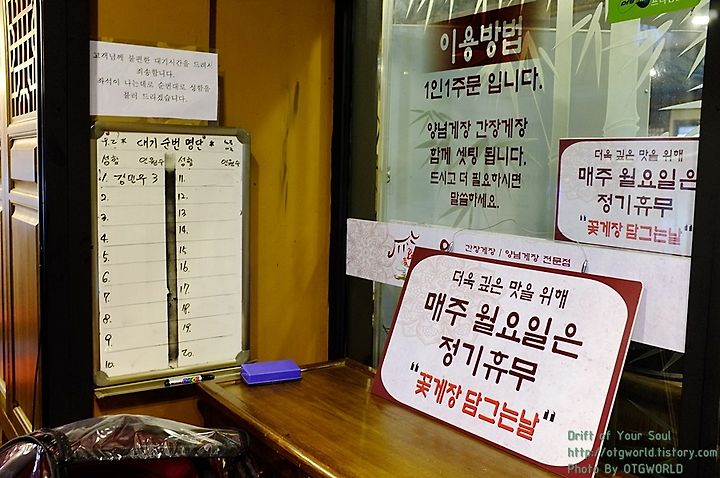 고객님께 불편한 대기시간을 드려서
죄송합니다.
좌석이 나는대로 순번대로 성함을
불러 드리겠습니다.
대기 순번 명단
성함 인원수 성함 인원수
1. 김민우 3 11.
2. 12.
3. 13.
4. 14.
5. 15.
6. 16.
7. 17.
8. 18.
9. 19.
10. 20.
이용방법
1인1주문 입니다.
양념게장 간장게장
함께 셋팅 됩니다.
드시고 더 필요하시면
말씀하세요.
더욱 깊은 맛을 위해
매주 월요일은
정기휴무
"꽃게장 담그는날"
간장게장 | 양념게장 전문점
더욱 깊은 맛을 위해
매주 월요일은
정기휴무
"꽃게장 담그는날"
Drift of Your Soul
http://otgworld.tistory.com
Photo By OTGWORLD